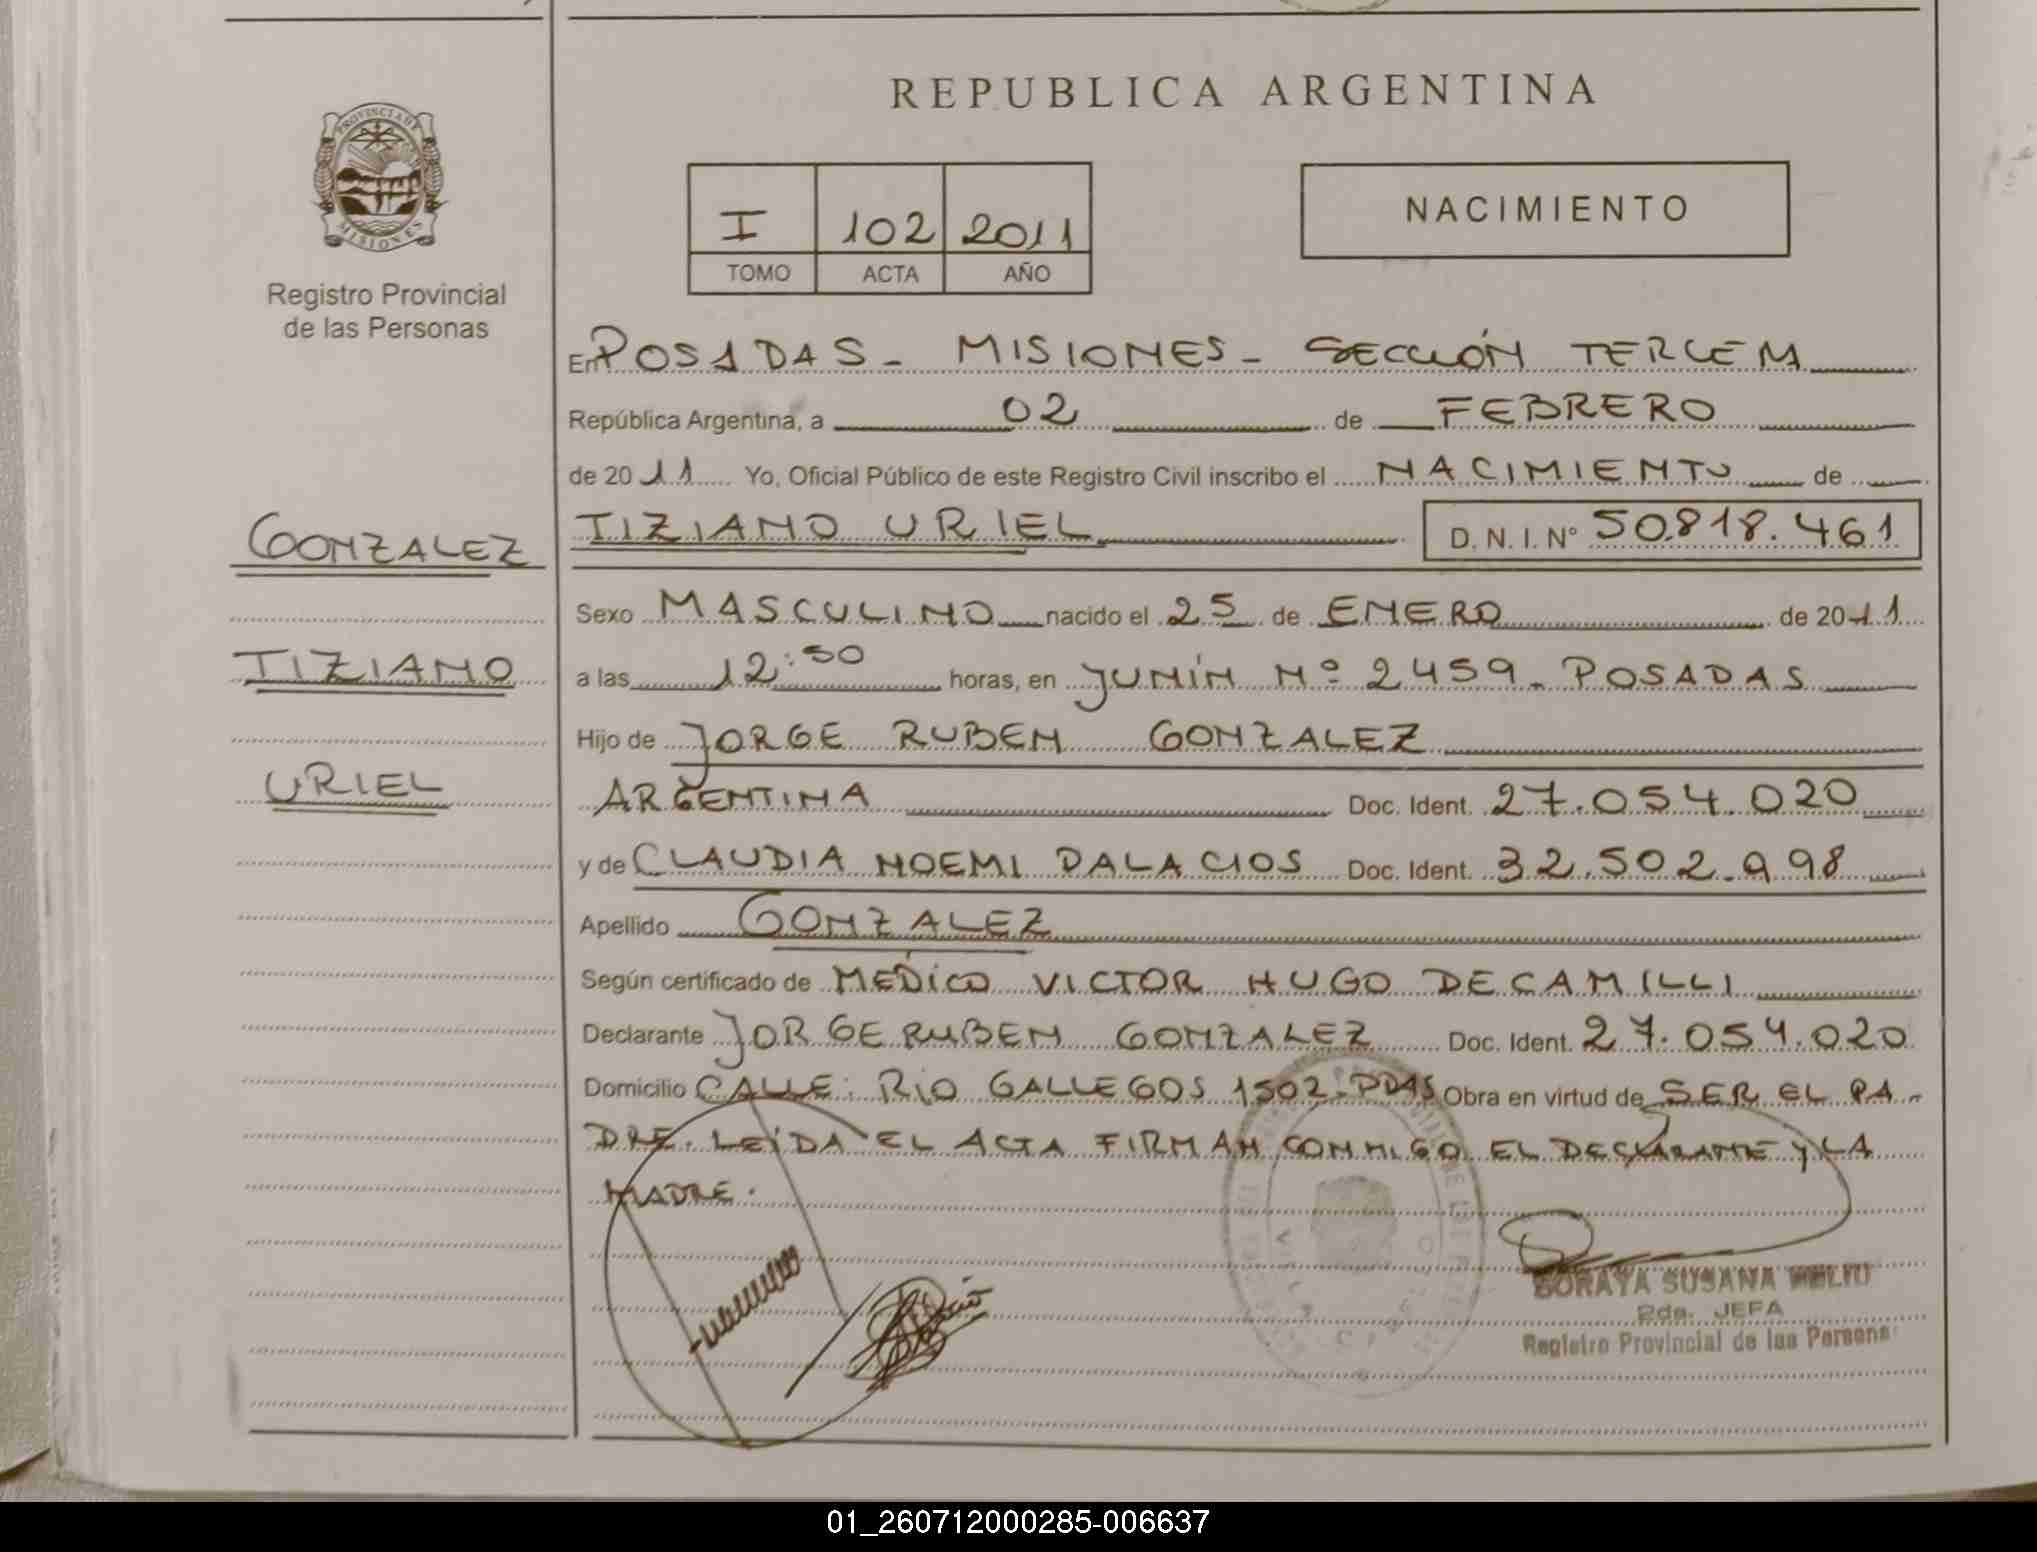 REPUBLICA ARGENTINA
PROVINCIA DE
MISIONES
Registro Provincial
de las Personas
I 102 2011
TOMO ACTA AÑO
NACIMIENTO
En POSADAS - MISIONES - SECCIÓN TERCERA
República Argentina, a 02 de FEBRERO
de 2011 Yo, Oficial Público de este Registro Civil inscribo el NACIMIENTO de
GONZALEZ
TIZIANO
URIEL
TIZIANO URIEL D.N.I.Nº 50.818.461
Sexo MASCULINO nacido el 25 de ENERO de 2011
a las 12:50 horas, en JUNÍN Nº 2459 - POSADAS
Hijo de JORGE RUBEN GONZALEZ
ARGENTINA Doc. Ident. 27.054.020
y de CLAUDIA NOEMI PALACIOS Doc. Ident. 32.502.998
Apellido GONZALEZ
Según certificado de MEDICO VICTOR HUGO DECAMILLI
Declarante JORGE RUBEN GONZALEZ Doc. Ident. 27.054.020
Domicilio CALLE: RIO GALLEGOS 1502 - PDAS Obra en virtud de SER EL PA-
DRE. LEÍDA EL ACTA FIRMAN CONMIGO EL DECLARANTE Y LA
MADRE.
SORAYA SUSANA
2da. JEFA
Registro Provincial de las Persona
01_260712000285-006637